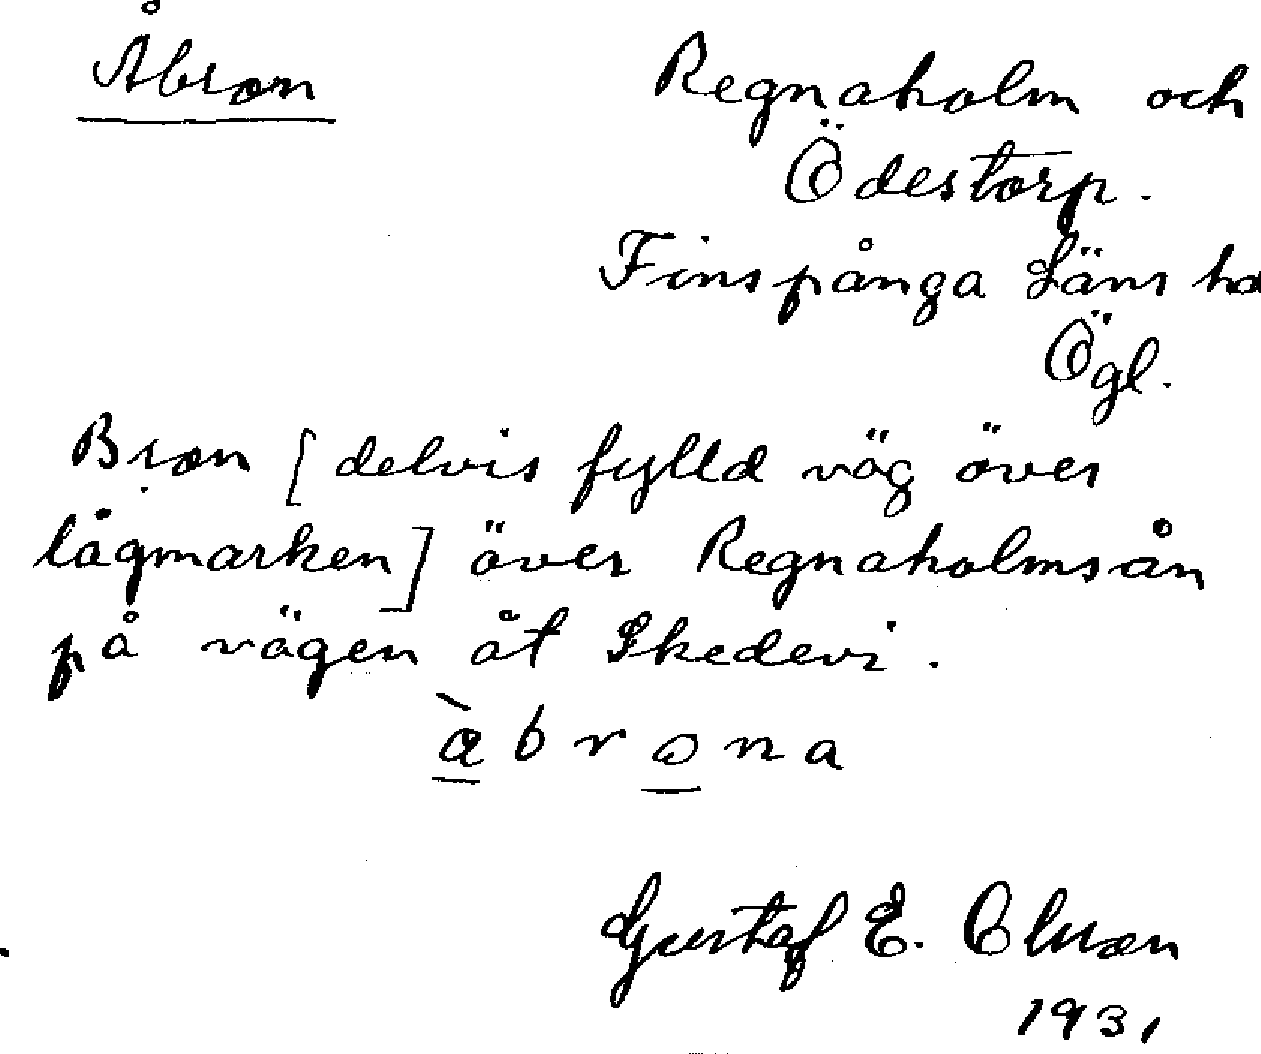 Åbron
Regnaholm och
Ödestorp.
Finspånga Läns hd
Ögl.
Bron [delvis fylld väg över
lågmarken] över Regnaholmsån
på vägen åt Skedevi.
àbrona
Gustaf E.
1931